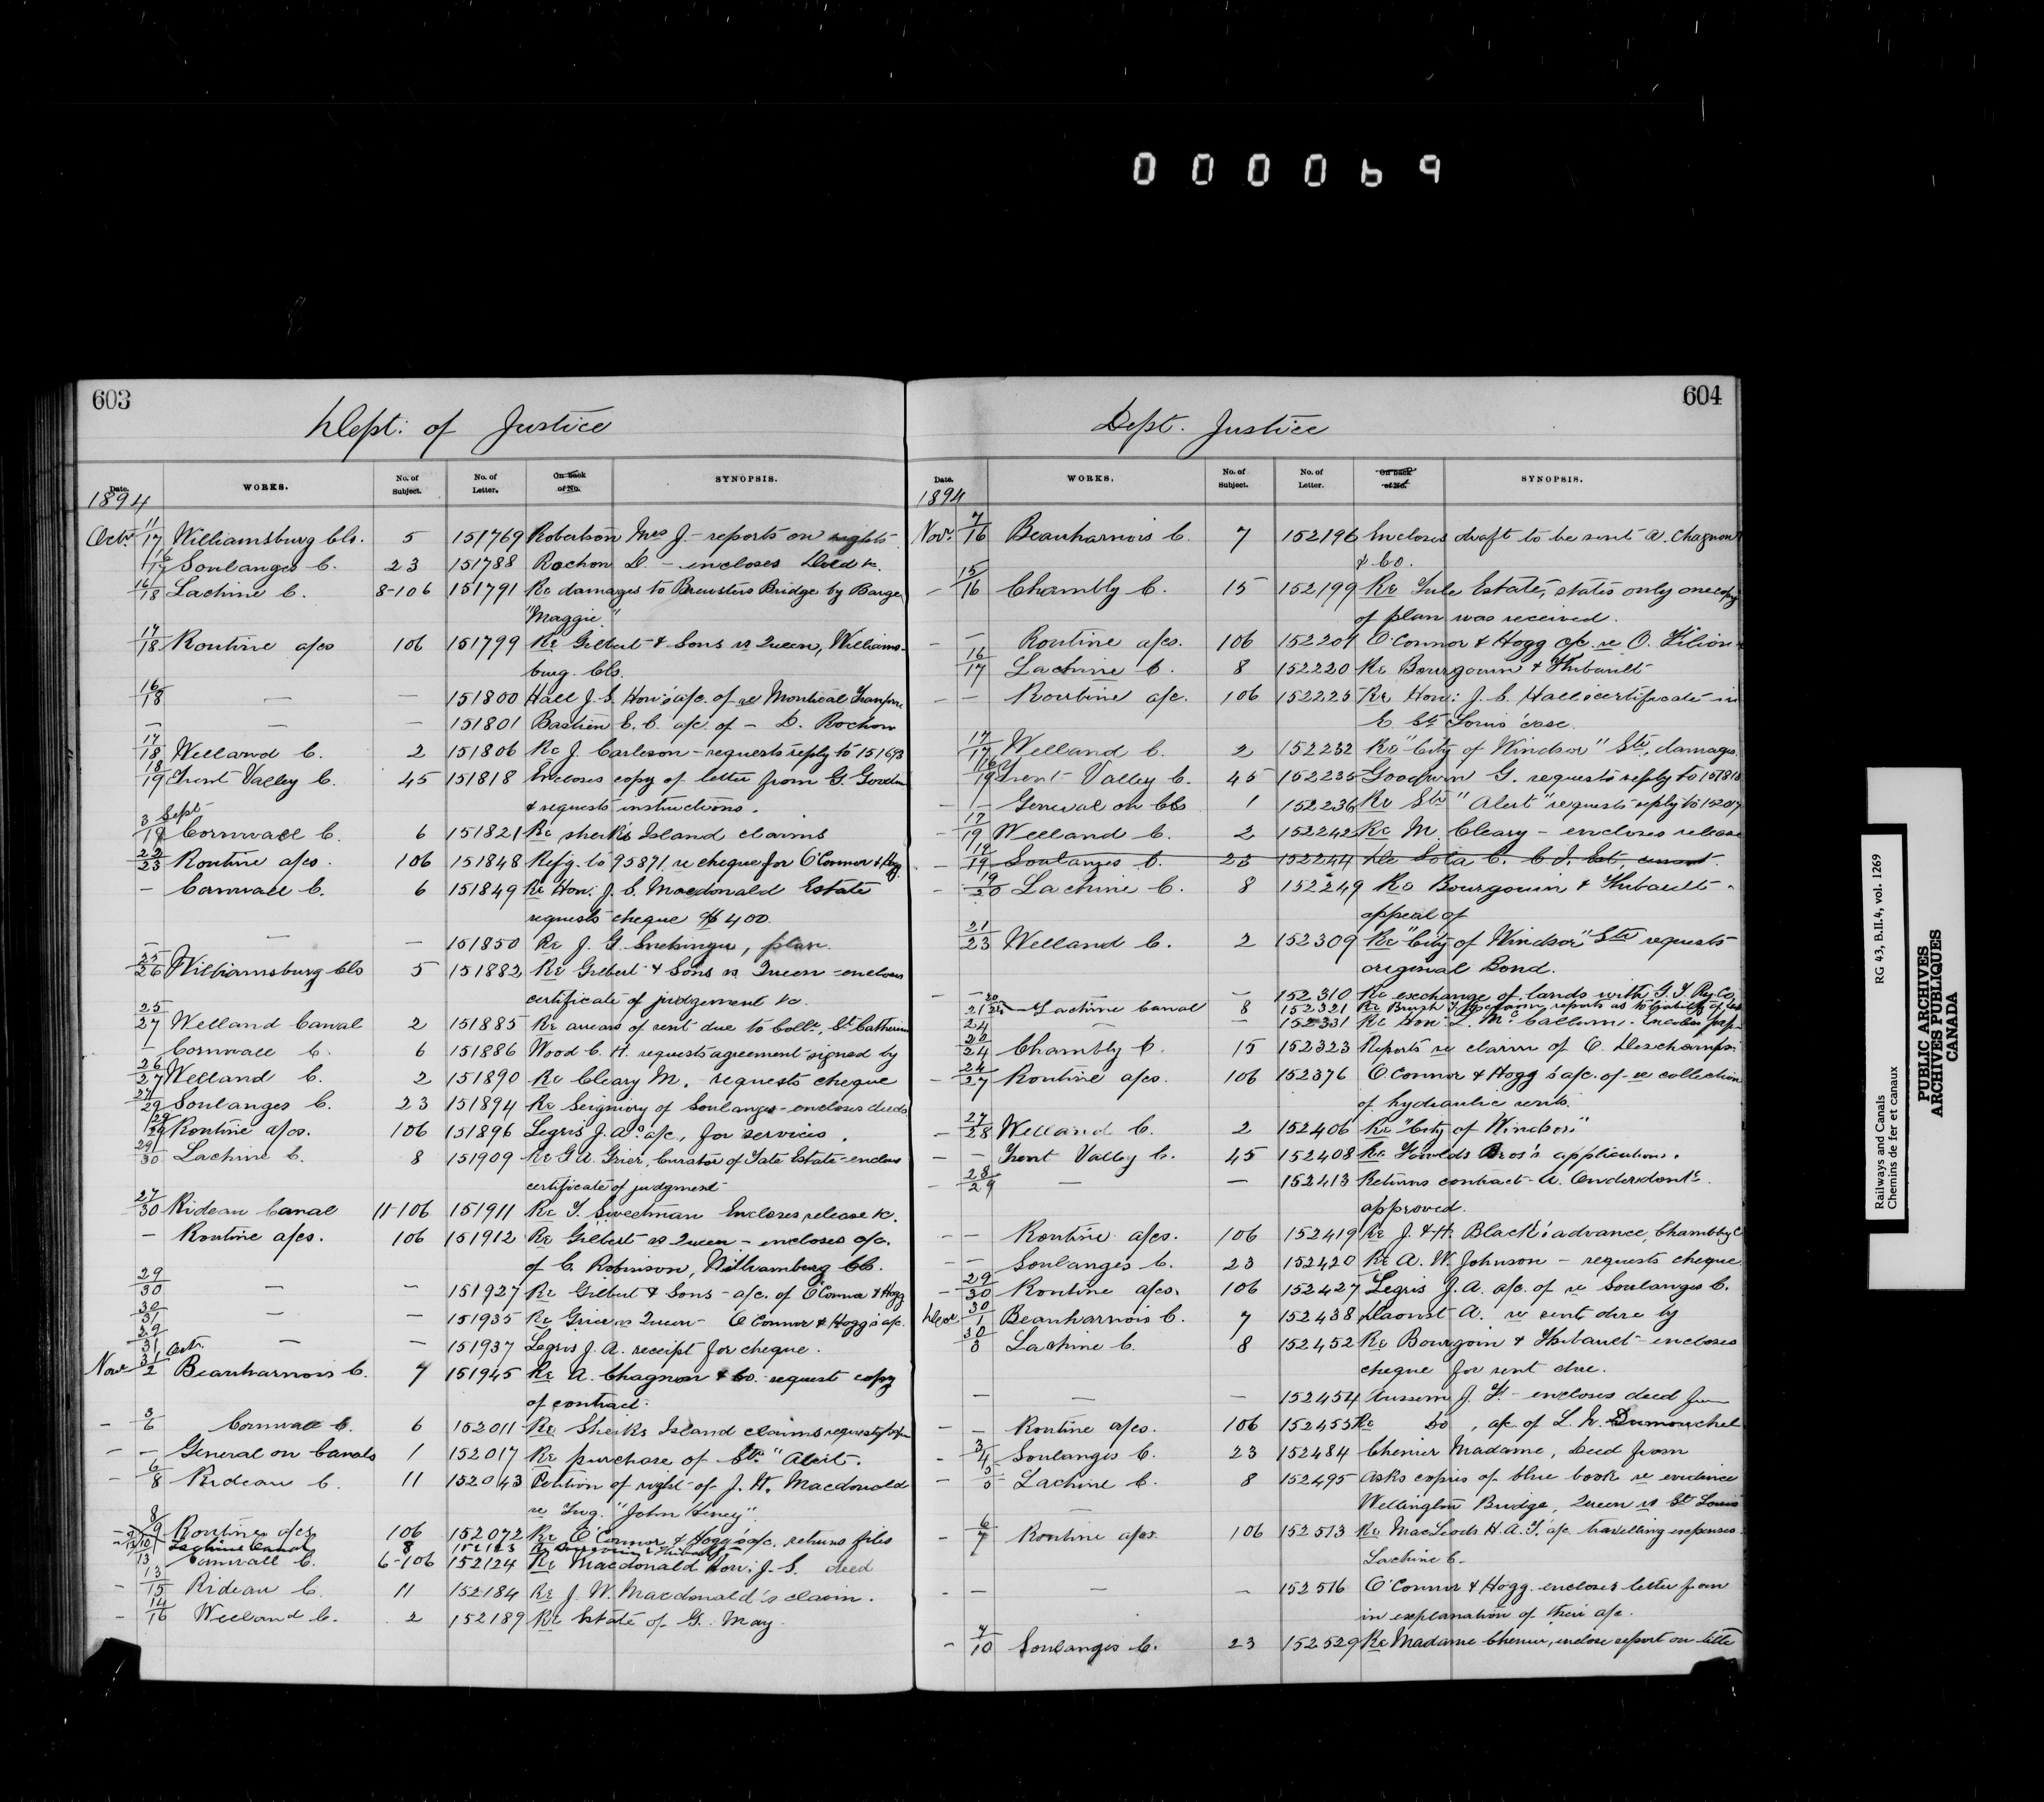 000069
603
Dept: of Justice
Date. WORKS. No. of Subject. No. of Letter. On back of No. SYNOPSIS.
1894
Octr. 11/17 Williamsburg Cls. 5 151769 Robertson Mrs J - reports on rights
16/17 Soulanges C. 23 151788 Rochon D - encloses Deed &c.
16/18 Lachine C. 8-106 151791 Re damages to Brewsters Bridge by Barge
"Maggie"
17/18 Routine a/cs 106 151799 Re Gilbert & Sons vs Queen, Williams-
burg Cls.
16/18 — — 151800 Hall J. S. Hon's a/c. of re Montreal Transfer
— — — 151801 Bastien E. C. a/c of - D. Rochon
17/18 Welland C. 2 151806 Re J. Carleson - requests reply to 151693
18/19 Trent Valley C. 45 151818 Encloses copy of letter from G. Goodwin
& requests instructions.
3 Sept/19 Cornwall C. 6 151821 Re Sheik's Island claims
22/23 Routine a/cs. 106 151848 Refg. to 95871 re cheque for O'Connor & Hogg
— Cornwall C. 6 151849 Re Hon: J. S. Macdonald Estate
requests cheque $400.
— — — 151850 Re J. G. Snetsinger, plan.
25/26 Williamsburg Cls 5 151882 Re Gilbert & Sons vs Queen - encloses
certificate of judgement &c.
25/27 Welland Canal 2 151885 Re arrears of rent due to Collr. St Catherines
— Cornwall C. 6 151886 Wood C. H. requests agreement signed by
26/27 Welland C. 2 151890 Re Cleary M. - requests cheque
27/29 Soulanges C. 23 151894 Re Seigniory of Soulanges - encloses deeds
29/29 Routine a/cs. 106 151896 Legris J. A's a/c, for services.
29/30 Lachine C. 8 151909 Re G. A. Grier, Curator of Tate Estate - encloses
certificate of judgment
27/30 Rideau Canal 11-106 151911 Re T. Sweetman Encloses release &c.
— Routine a/cs. 106 151912 Re Gilbert vs Queen - encloses a/c.
of C. Robinson, Williamsburg Cls.
29/30 — — 151927 Re Gilbert & Sons - a/c. of O'Connor & Hogg
30/31 — — 151935 Re Grier vs Queen - O'Connor & Hogg's a/c.
29/31 — — 151937 Legris J. A. receipt for cheque.
Novr 31 Octr./2 Beauharnois C. 7 151945 Re A. Chagnon & Co. request copy
of contract.
— 3/6 Cornwall C. 6 152011 Re Sheiks Island claims
— — General on Canals 1 152017 Re purchase of Str. "Alert".
— 6/8 Rideau C. 11 152043 Petition of right of J. W. Macdonald
re Tug. "John Heney".
8/9 Routine a/cs 106 152072 Re O'Connor & Hogg's a/c. returns files
Lachine Canal 8 152123 Re Bourgouin & Thibault
13 Cornwall C. 6-106 152124 Re Macdonald Hon: J. S. deed
— 13/15 Rideau C. 11 152184 Re J. W. Macdonald's claim.
— 14/16 Welland C. 2 152189 Re Estate of G. May.
604
Dept. Justice
Date. WORKS. No. of Subject. No. of Letter. On back of No. SYNOPSIS.
1894
Novr. 7/16 Beauharnois C. 7 152196 Encloses draft to be sent A. Chagnon
& Co.
— 15/16 Chambly C. 15 152199 Re Yule Estate, states only one copy
of plan was received.
— — Routine a/cs. 106 152201 O'Connor & Hogg a/c. re O. Filion
16/17 Lachine C. 8 152220 Re Bourgouin & Thibault
— — Routine a/c. 106 152225 Re Hon: J. S. Hall's certificate in
E. St Louis' case.
17/17 Welland C. 2 152232 Re "City of Windsor" Str. damages
16/19 Trent Valley C. 45 152235 Goodwin G. requests reply to 151818
— — General on Cls 1 152236 Re Str "Alert" requests reply to 152017
— 17/19 Welland C. 2 152242 Re M. Cleary - encloses release
— 19/19 Soulanges C. 23 152244 De Sola C. C. I.
— 19/20 Lachine C. 8 152249 Re Bourgouin & Thibault -
appeal of
21/23 Welland C. 2 152309 Re "City of Windsor" Str requests
original Bond.
— — — 152310 Re exchange of lands with G. T. Ry. Co.
Lachine Canal 8 152321 Re Brush reports as to
24 — — 152331 Re Hon: L. McCallum.
22/24 Chambly C. 15 152323 Reports re claim of O. Deschamps
— 24/27 Routine a/cs. 106 152376 O'Connor & Hogg's a/c. of - re collection
of hydraulic rents.
— 27/28 Welland C. 2 152406 Re "City of Windsor"
— — Trent Valley C. 45 152408 Re Fowlds Bros's application.
— 28/29 — — 152413 Returns contract - A. Onderdonk
approved.
— — Routine a/cs. 106 152419 Re J. & H. Black's advance, Chambly C
— — Soulanges C. 23 152420 Re A. W. Johnson - requests cheque
— 29/30 Routine a/cs. 106 152427 Legris J. A. a/c. of re Soulanges C.
Decr 30/1 Beauharnois C. 7 152438 Daoust A. re rent due by
30/3 Lachine C. 8 152452 Re Bourgoin & Thibault - encloses
cheque for rent due.
— — — 152454 J. F. - encloses deed from
— — Routine a/cs. 106 152455 Re Do , a/c. of L. N. Dumouchel
— 3/4 Soulanges C. 23 152484 Chenier Madame, Deed from
— 3/5 Lachine C. 8 152495 Asks copies of blue book re evidence
Wellington Bridge, Queen vs St Louis
— 6/7 Routine a/cs. 106 152513 Re MacLeods H. A. F. a/c. travelling expenses.
Lachine C.
— — — — 152516 O'Connor & Hogg. encloses letter from
in explanation of their a/c.
— 7/10 Soulanges C. 23 152529 Re Madame Chenier, enclose report on title
Railways and Canals RG 43, B.II.4, vol. 1269
Chemins de fer et canaux
PUBLIC ARCHIVES
ARCHIVES PUBLIQUES
CANADA